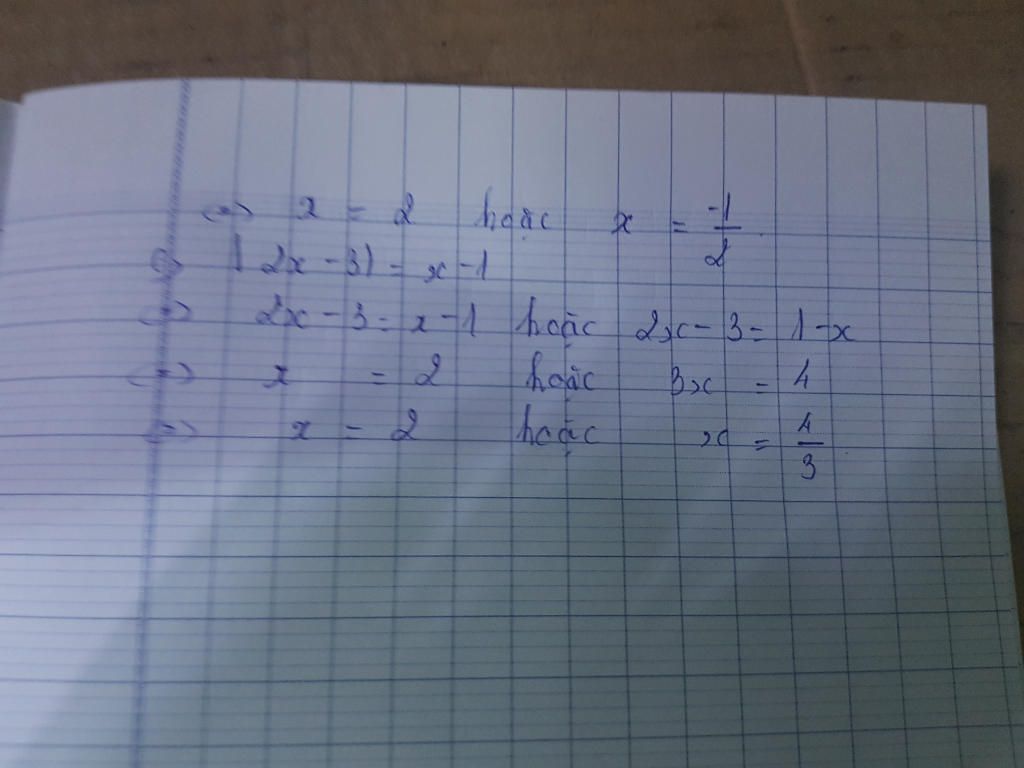 <=> x = 2 hoặc x = -1/2
|2x - 3| = x - 1
<=> 2x - 3 = x - 1 hoặc 2x - 3 = 1 - x
<=> x = 2 hoặc 3x = 4
<=> x = 2 hoặc x = 4/3